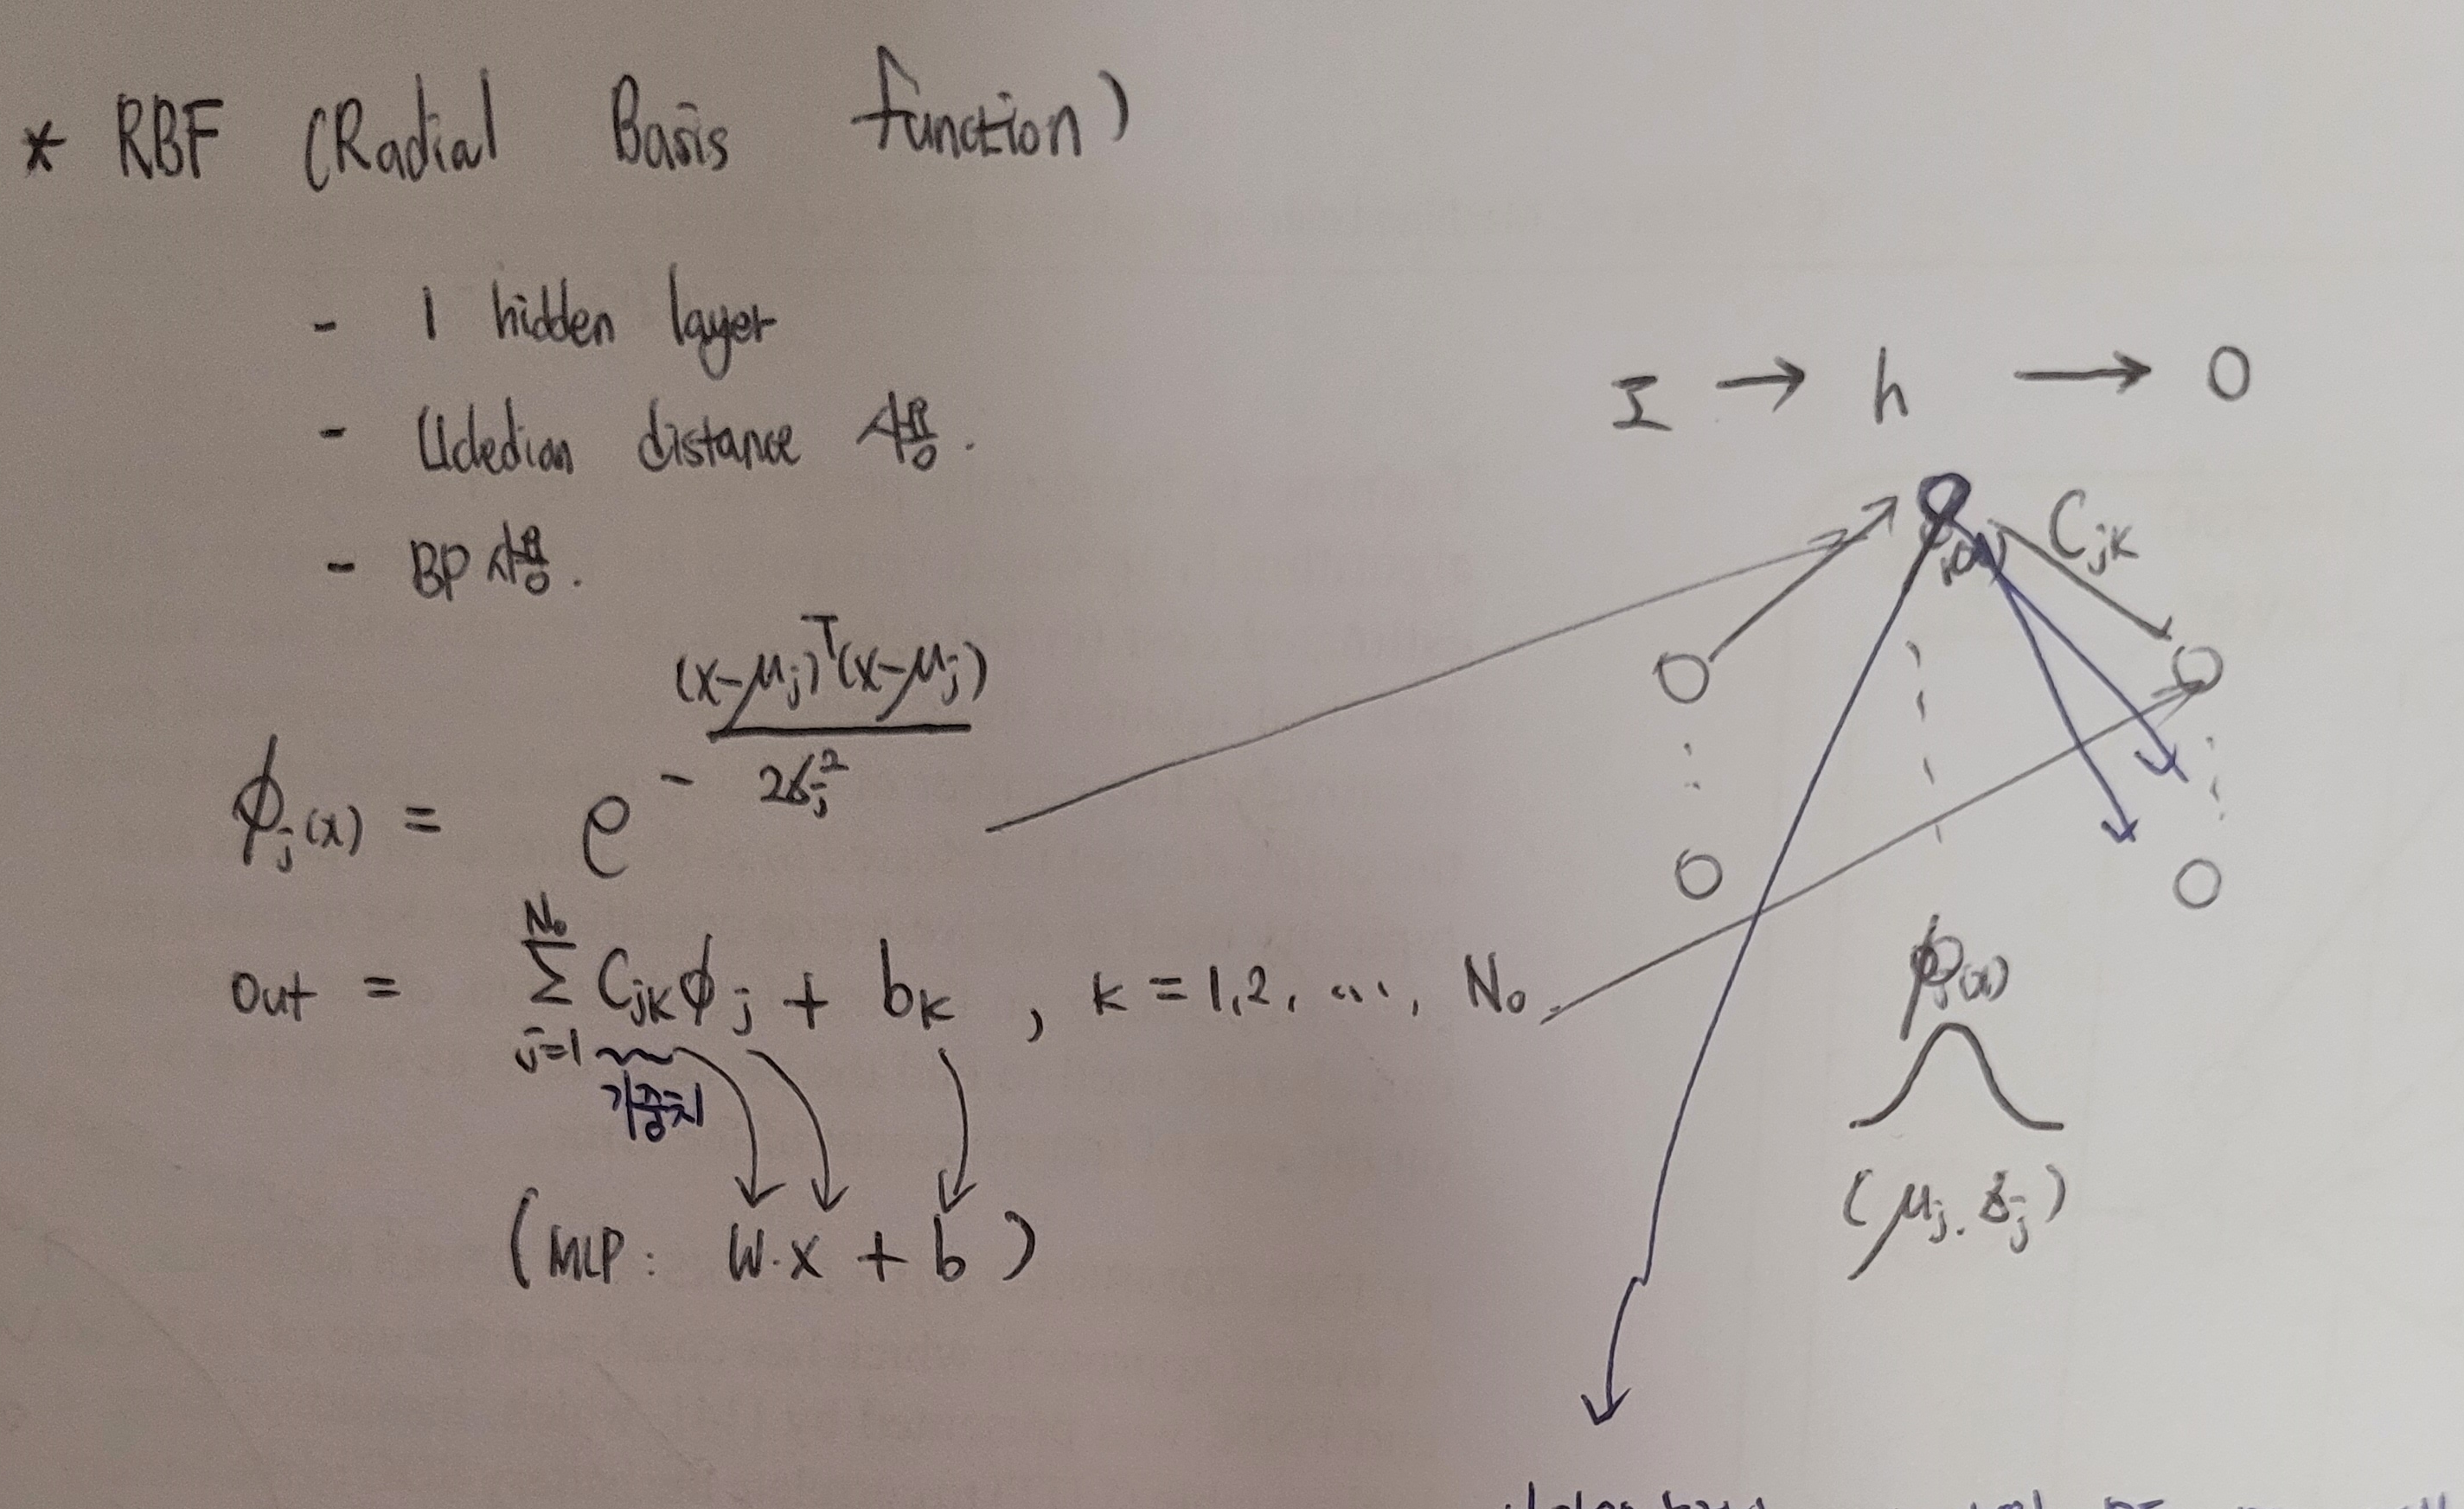 * RBF (Radial Basis function)
- 1 hidden layer
- Ucledian distance 사용.
- BP 사용.
I → h → O
C_jk
ϕ_j(x) = e^{-\frac{(x-μ_j)^T(x-μ_j)}{2σ_j^2}}
out = \sum_{j=1}^{N_o} C_jk ϕ_j + b_k , k = 1,2, ..., N_o
가중치
(MLP: W·x + b)
ϕ_j(x)
(μ_j, σ_j)